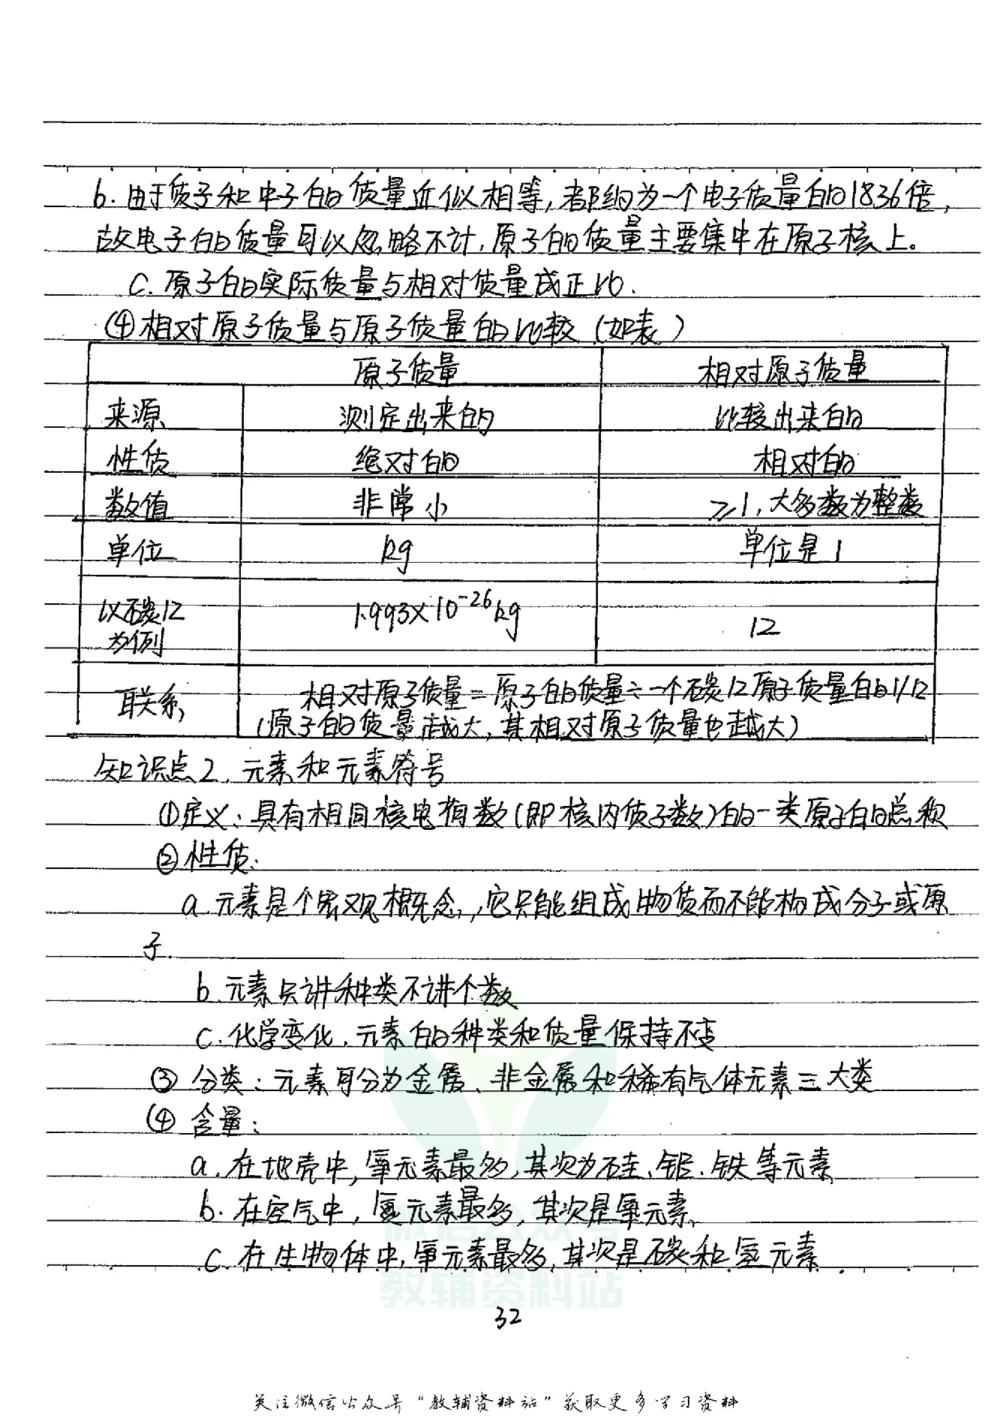 b.由于质子和中子的质量近似相等,都约为一个电子质量的1836倍,
故电子的质量可以忽略不计,原子的质量主要集中在原子核上。
C.原子的实际质量与相对质量成正比.
④相对原子质量与原子质量的比较(如表)
原子质量 相对原子质量
来源 测定出来的 比较出来的
性质 绝对的 相对的
数值 非常小 ≥1,大多数为整数
单位 kg 单位是1
以碳12为例 1.993×10⁻²⁶kg 12
联系 相对原子质量=原子的质量÷一个碳12原子质量的1/12
(原子的质量越大,其相对原子质量也越大)
知识点2.元素和元素符号
①定义:具有相同核电荷数(即核内质子数)的一类原子的总称
②性质:
a.元素是个宏观概念,它只能组成物质而不能构成分子或原
子.
b.元素只讲种类不讲个数
C.化学变化,元素的种类和质量保持不变
③分类:元素可分为金属、非金属和稀有气体元素三大类
④含量:
a.在地壳中,氧元素最多,其次为硅、铝、铁等元素
b.在空气中,氮元素最多,其次是氧元素,
C.在生物体中,氧元素最多,其次是碳和氢元素.
微信公众号
教辅资料站
32
关注微信公众号“教辅资料站”获取更多学习资料